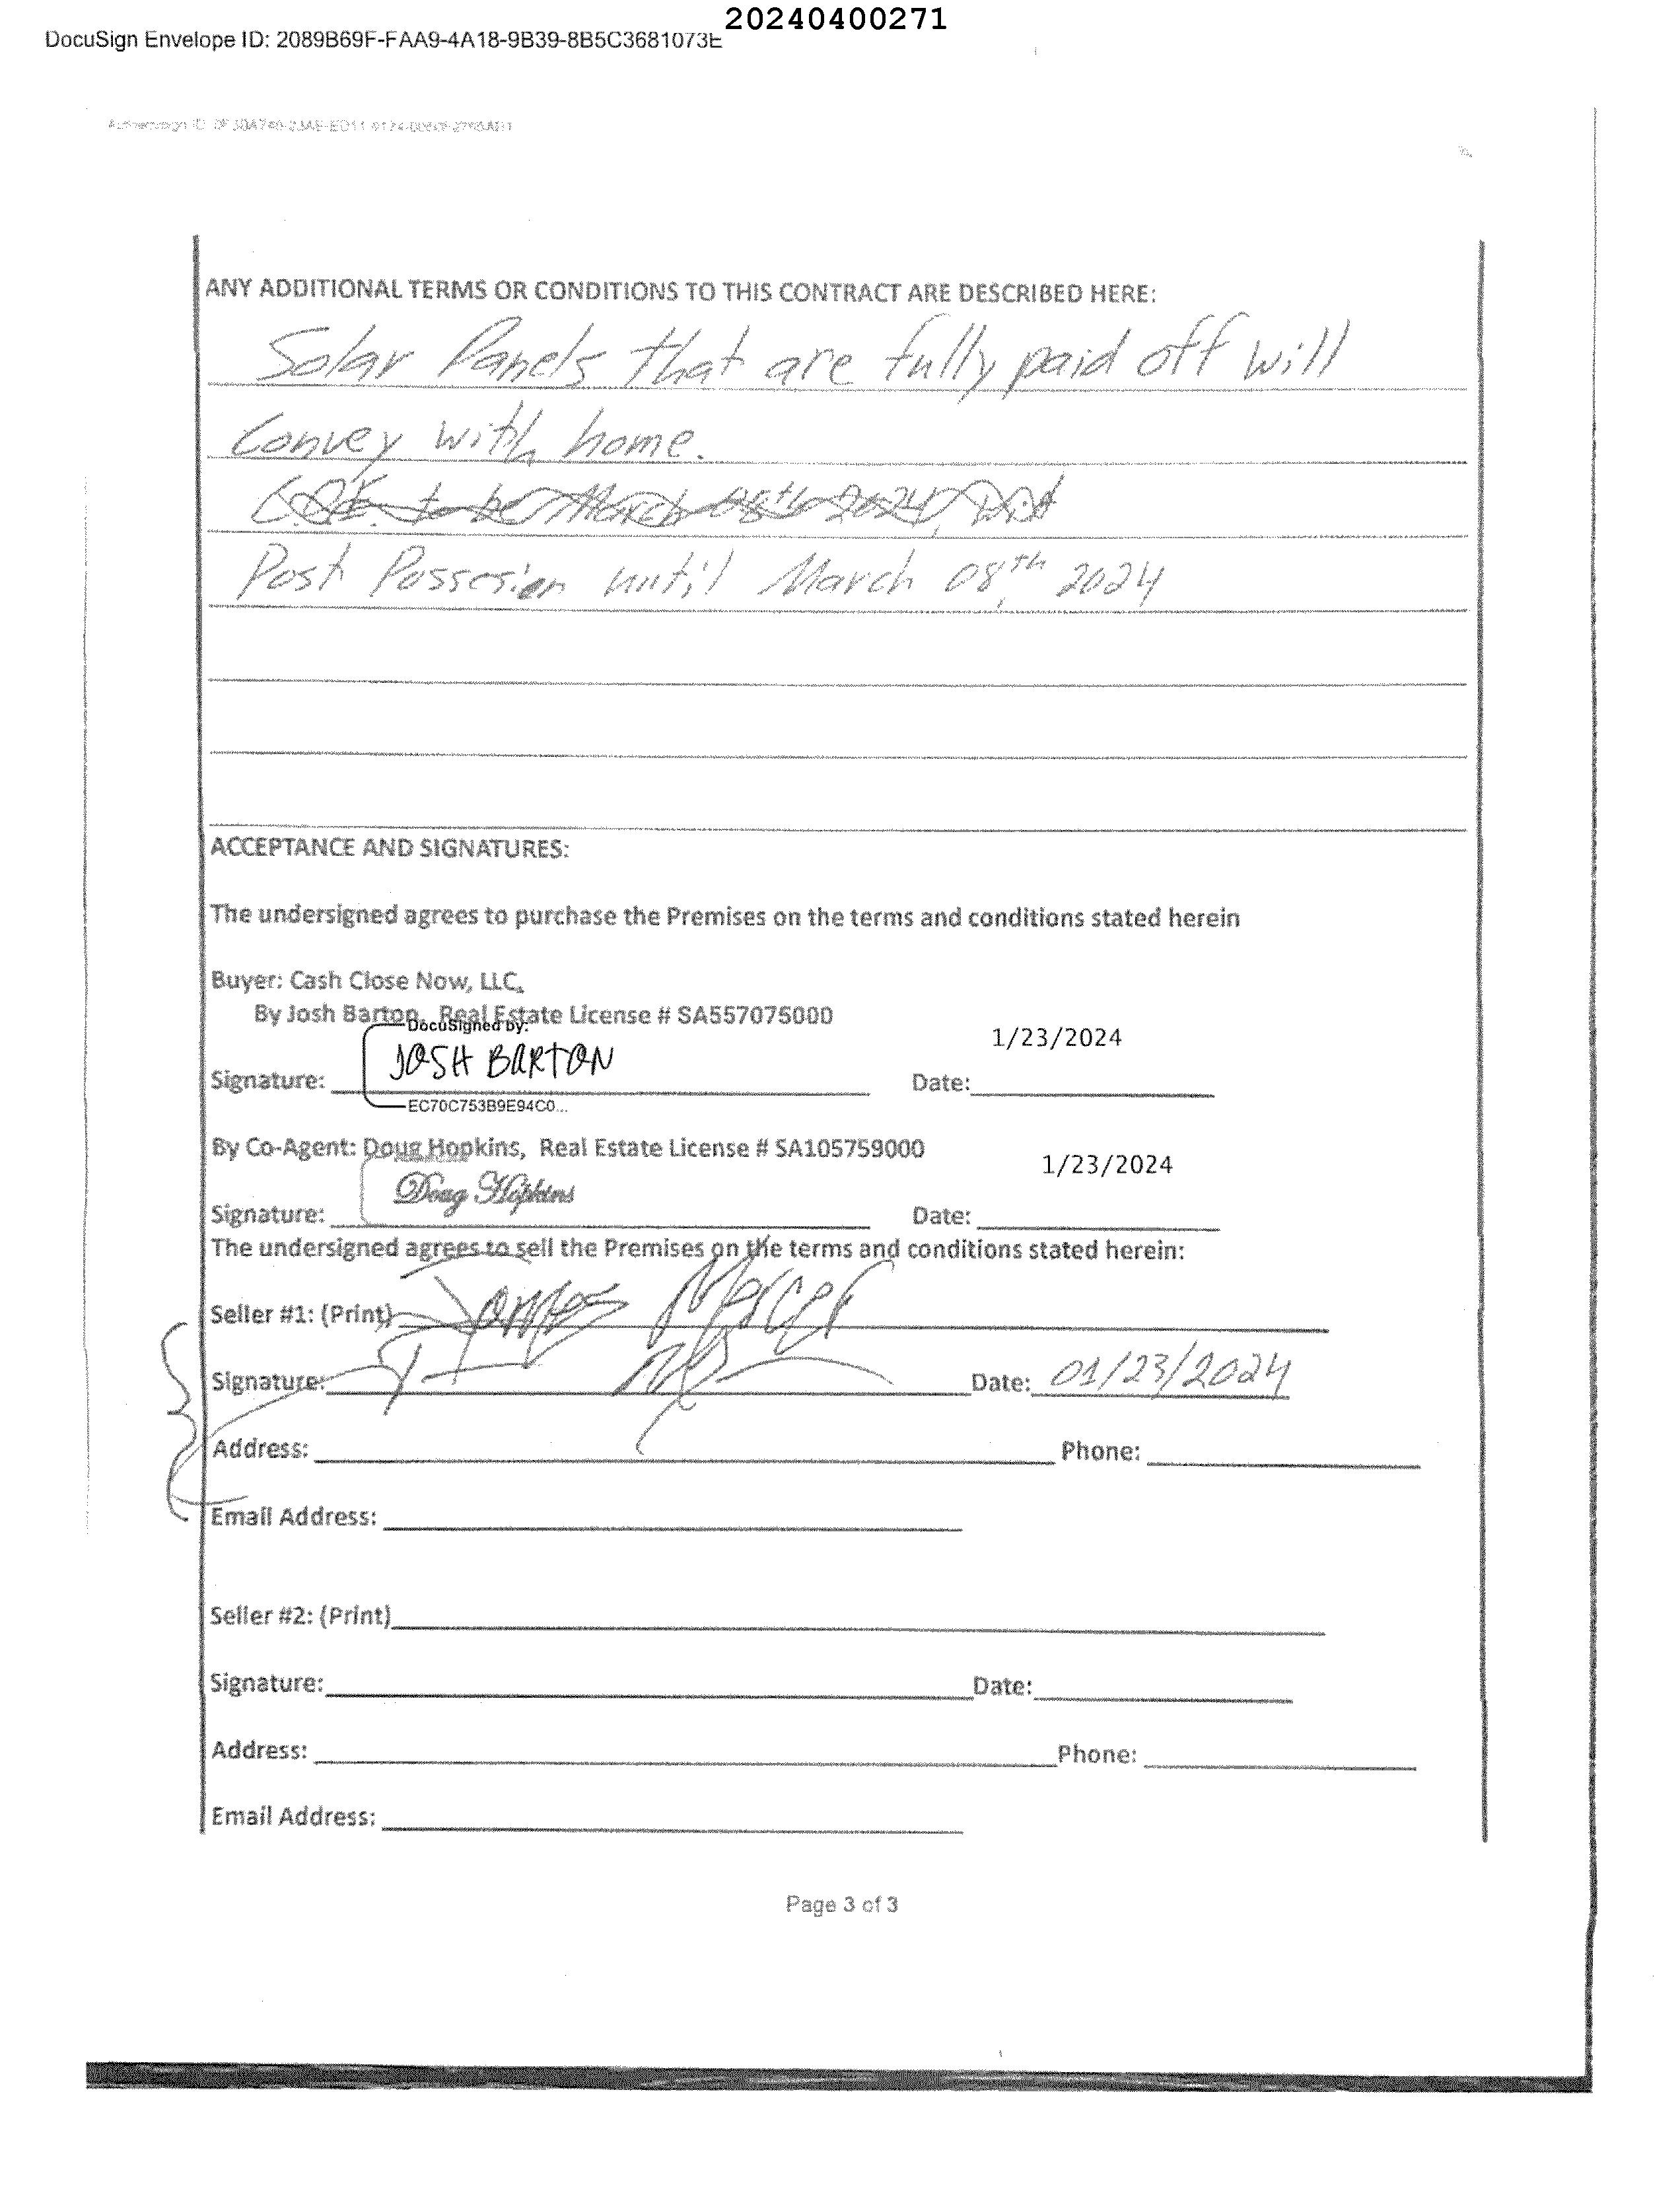 20240400271
DocuSign Envelope ID: 2089B69F-FAA9-4A18-9B39-8B5C3681073E
ANY ADDITIONAL TERMS OR CONDITIONS TO THIS CONTRACT ARE DESCRIBED HERE:
Solar Panels that are fully paid off will
Convey with home.
C.O.E. to be March 08th 2024,
Post Possesion until March 08th, 2024
ACCEPTANCE AND SIGNATURES:
The undersigned agrees to purchase the Premises on the terms and conditions stated herein
Buyer: Cash Close Now, LLC,
By Josh Barton, Real Estate License # SA557075000
DocuSigned by:
1/23/2024
JOSH BARTON
Signature: Date:
EC70C753B9E94C0...
By Co-Agent: Doug Hopkins, Real Estate License # SA105759000
1/23/2024
Doug Hopkins
Signature: Date:
The undersigned agrees to sell the Premises on the terms and conditions stated herein:
Seller #1: (Print) James Mercer
Signature: Date: 01/23/2024
Address: Phone:
Email Address:
Seller #2: (Print)
Signature: Date:
Address: Phone:
Email Address:
Page 3 of 3